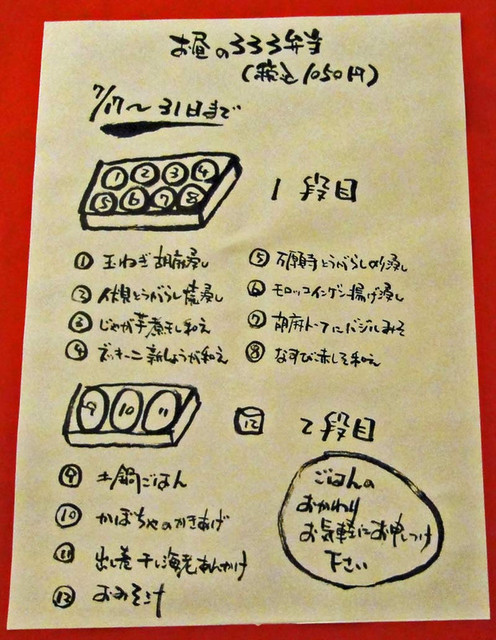 お昼の333弁当
(税込1050円)
7/17〜31日まで
① ② ③ ④
⑤ ⑥ ⑦ ⑧
1段目
① 玉ねぎ胡麻浸し
② 伏見とうがらし焼浸し
③ じゃが芋煮干し和え
④ ズッキーニ新しょうが和え
⑤ 万願寺とうがらし炒り浸し
⑥ モロッコインゲン揚げ浸し
⑦ 胡麻トーフにバジルみそ
⑧ なすび赤しそ和え
⑨ ⑩ ⑪
⑫
2段目
⑨ 土鍋ごはん
⑩ かぼちゃのかきあげ
⑪ 出し巻 干し海老あんかけ
⑫ おみそ汁
ごはんの
おかわり
お気軽にお申しつけ
下さい